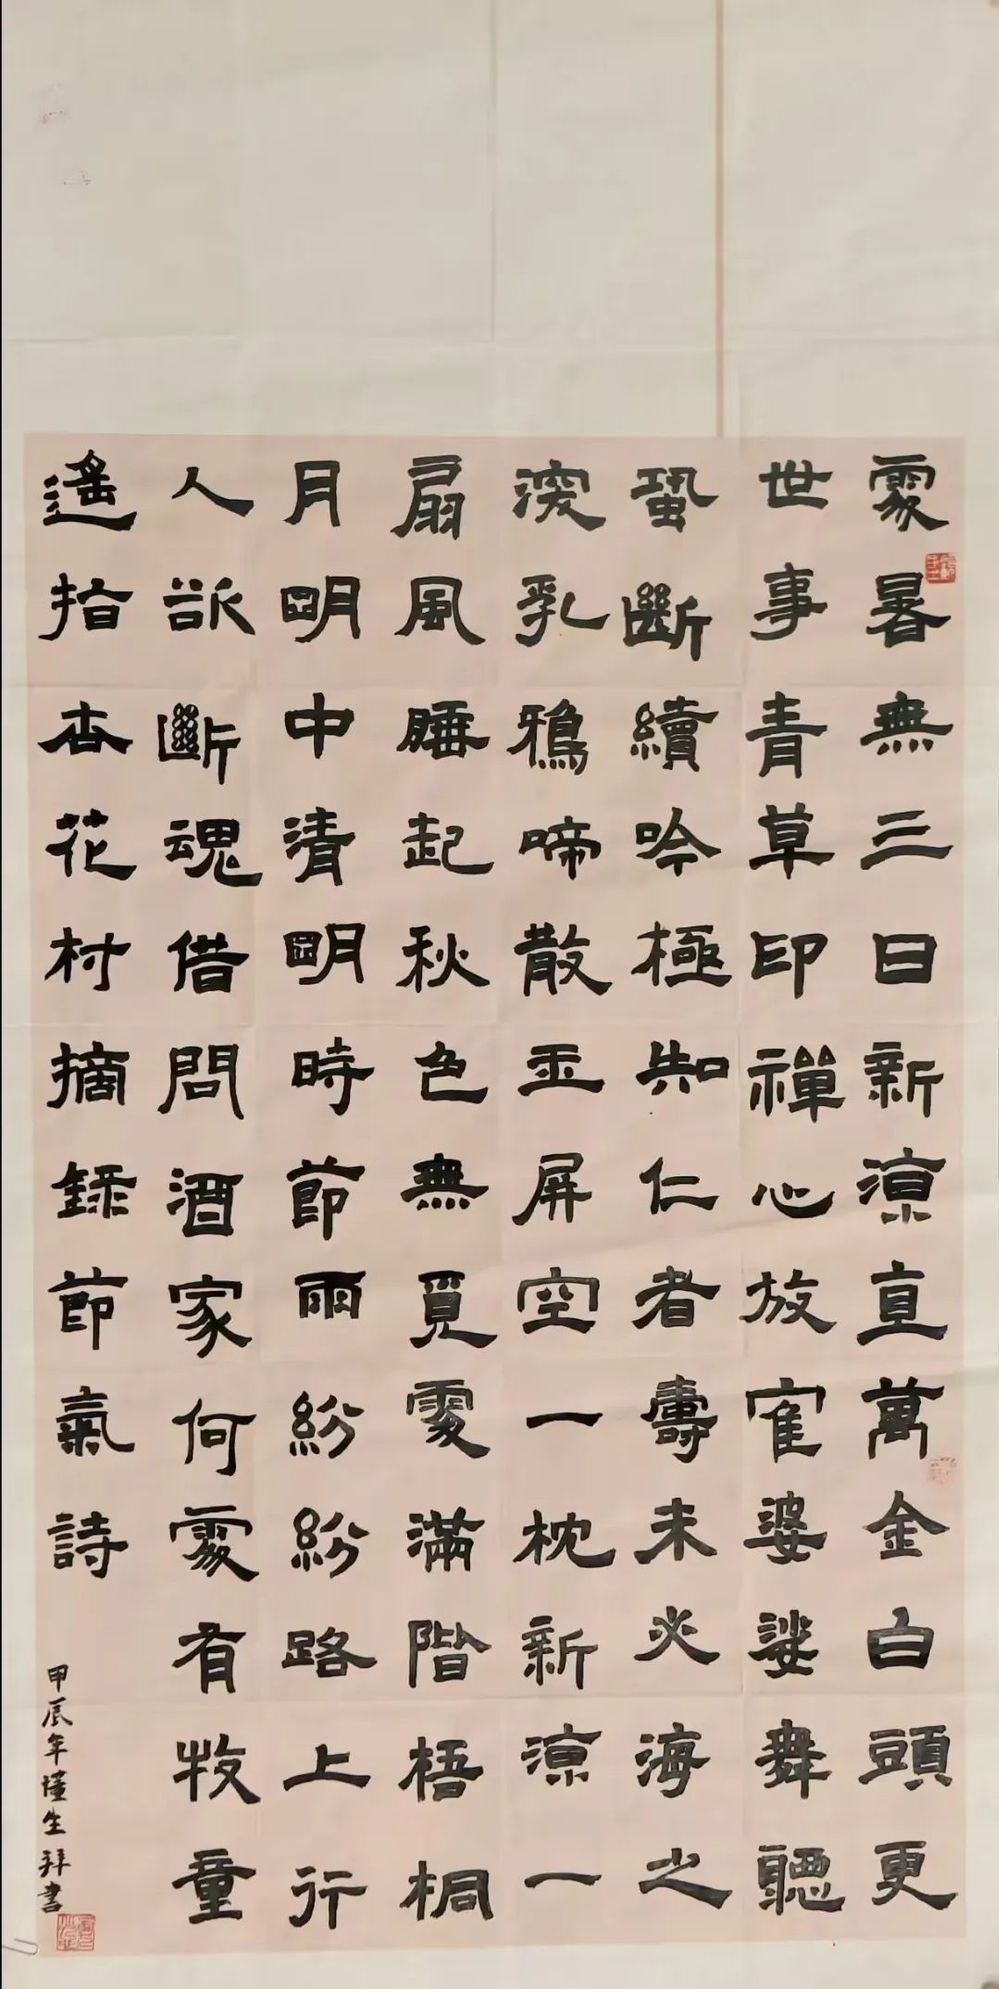 處暑無三日新涼直萬金白頭更
世事青草印禪心放寉婆娑舞聽
蛩斷續吟極知仁者壽未必海之
深乳鴉啼散玉屏空一枕新涼一
扇風睡起秋色無覓處滿階梧桐
月明中清明時節雨紛紛路上行
人欲斷魂借問酒家何處有牧童
遙指杏花村摘錄節氣詩
甲辰年生拜書